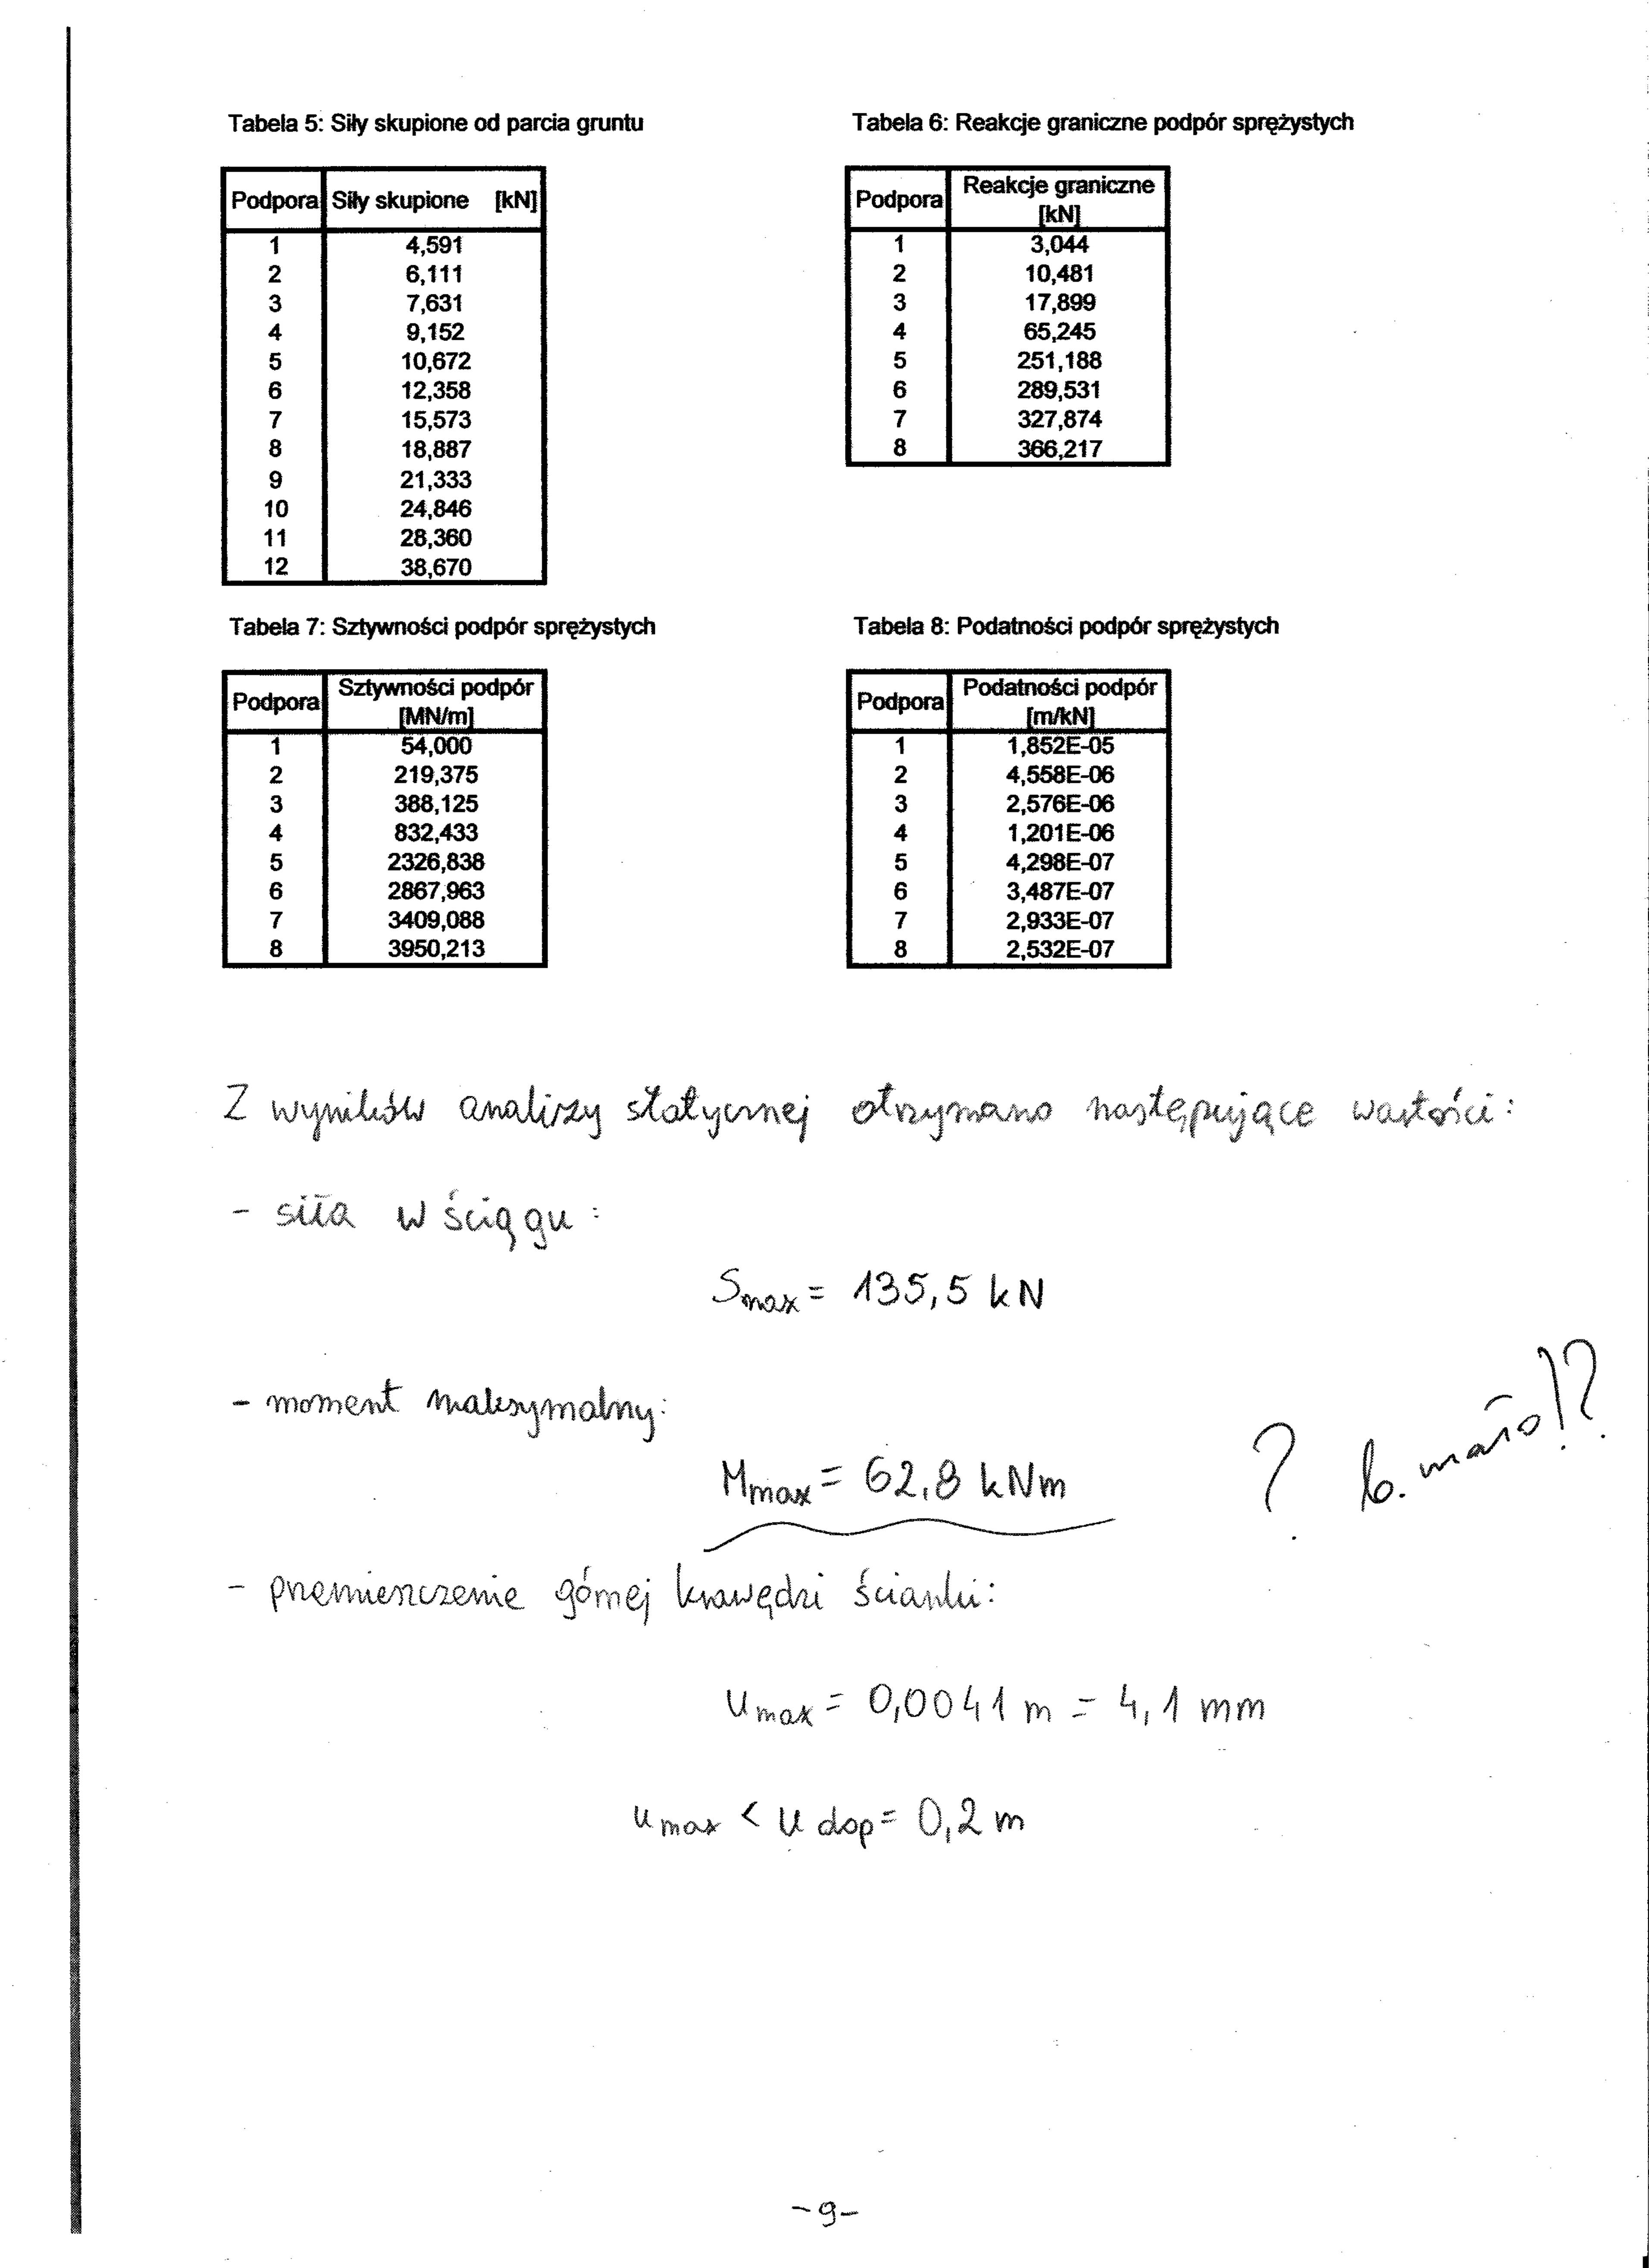 Tabela 5: Siły skupione od parcia gruntu
Podpora Siły skupione [kN]
1 4,591
2 6,111
3 7,631
4 9,152
5 10,672
6 12,358
7 15,573
8 18,887
9 21,333
10 24,846
11 28,360
12 38,670
Tabela 6: Reakcje graniczne podpór sprężystych
Podpora Reakcje graniczne [kN]
1 3,044
2 10,481
3 17,899
4 65,245
5 251,188
6 289,531
7 327,874
8 366,217
Tabela 7: Sztywności podpór sprężystych
Podpora Sztywności podpór [MN/m]
1 54,000
2 219,375
3 388,125
4 832,433
5 2326,838
6 2867,963
7 3409,088
8 3950,213
Tabela 8: Podatności podpór sprężystych
Podpora Podatności podpór [m/kN]
1 1,852E-05
2 4,558E-06
3 2,576E-06
4 1,201E-06
5 4,298E-07
6 3,487E-07
7 2,933E-07
8 2,532E-07
Z wyników analizy statycznej otrzymano następujące wartości:
- siła w ściągu:
Smax = 135,5 kN
- moment maksymalny:
Mmax = 62,8 kNm ? b. mało!?
- przemieszczenie górnej krawędzi ścianki:
umax = 0,0041 m = 4,1 mm
umax < u dop = 0,2 m
-9-